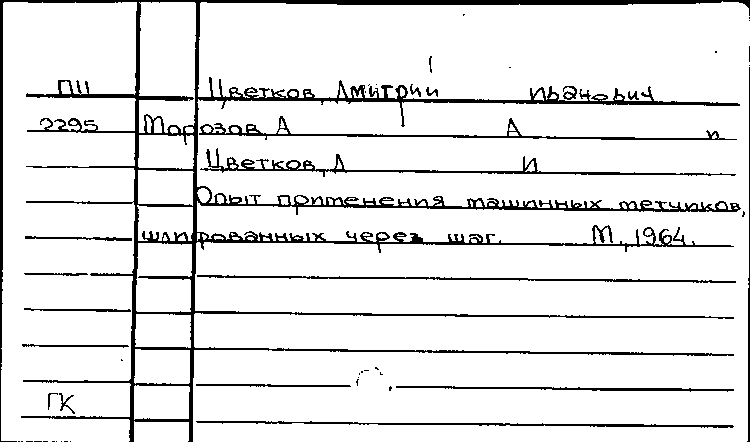 ПII Цветков, Дмитрий Иванович
2295 Марозов, А А и
Цветков, Д И
Опыт применения машинных метчиков,
шлифованных через шаг. М., 1964.
ГК